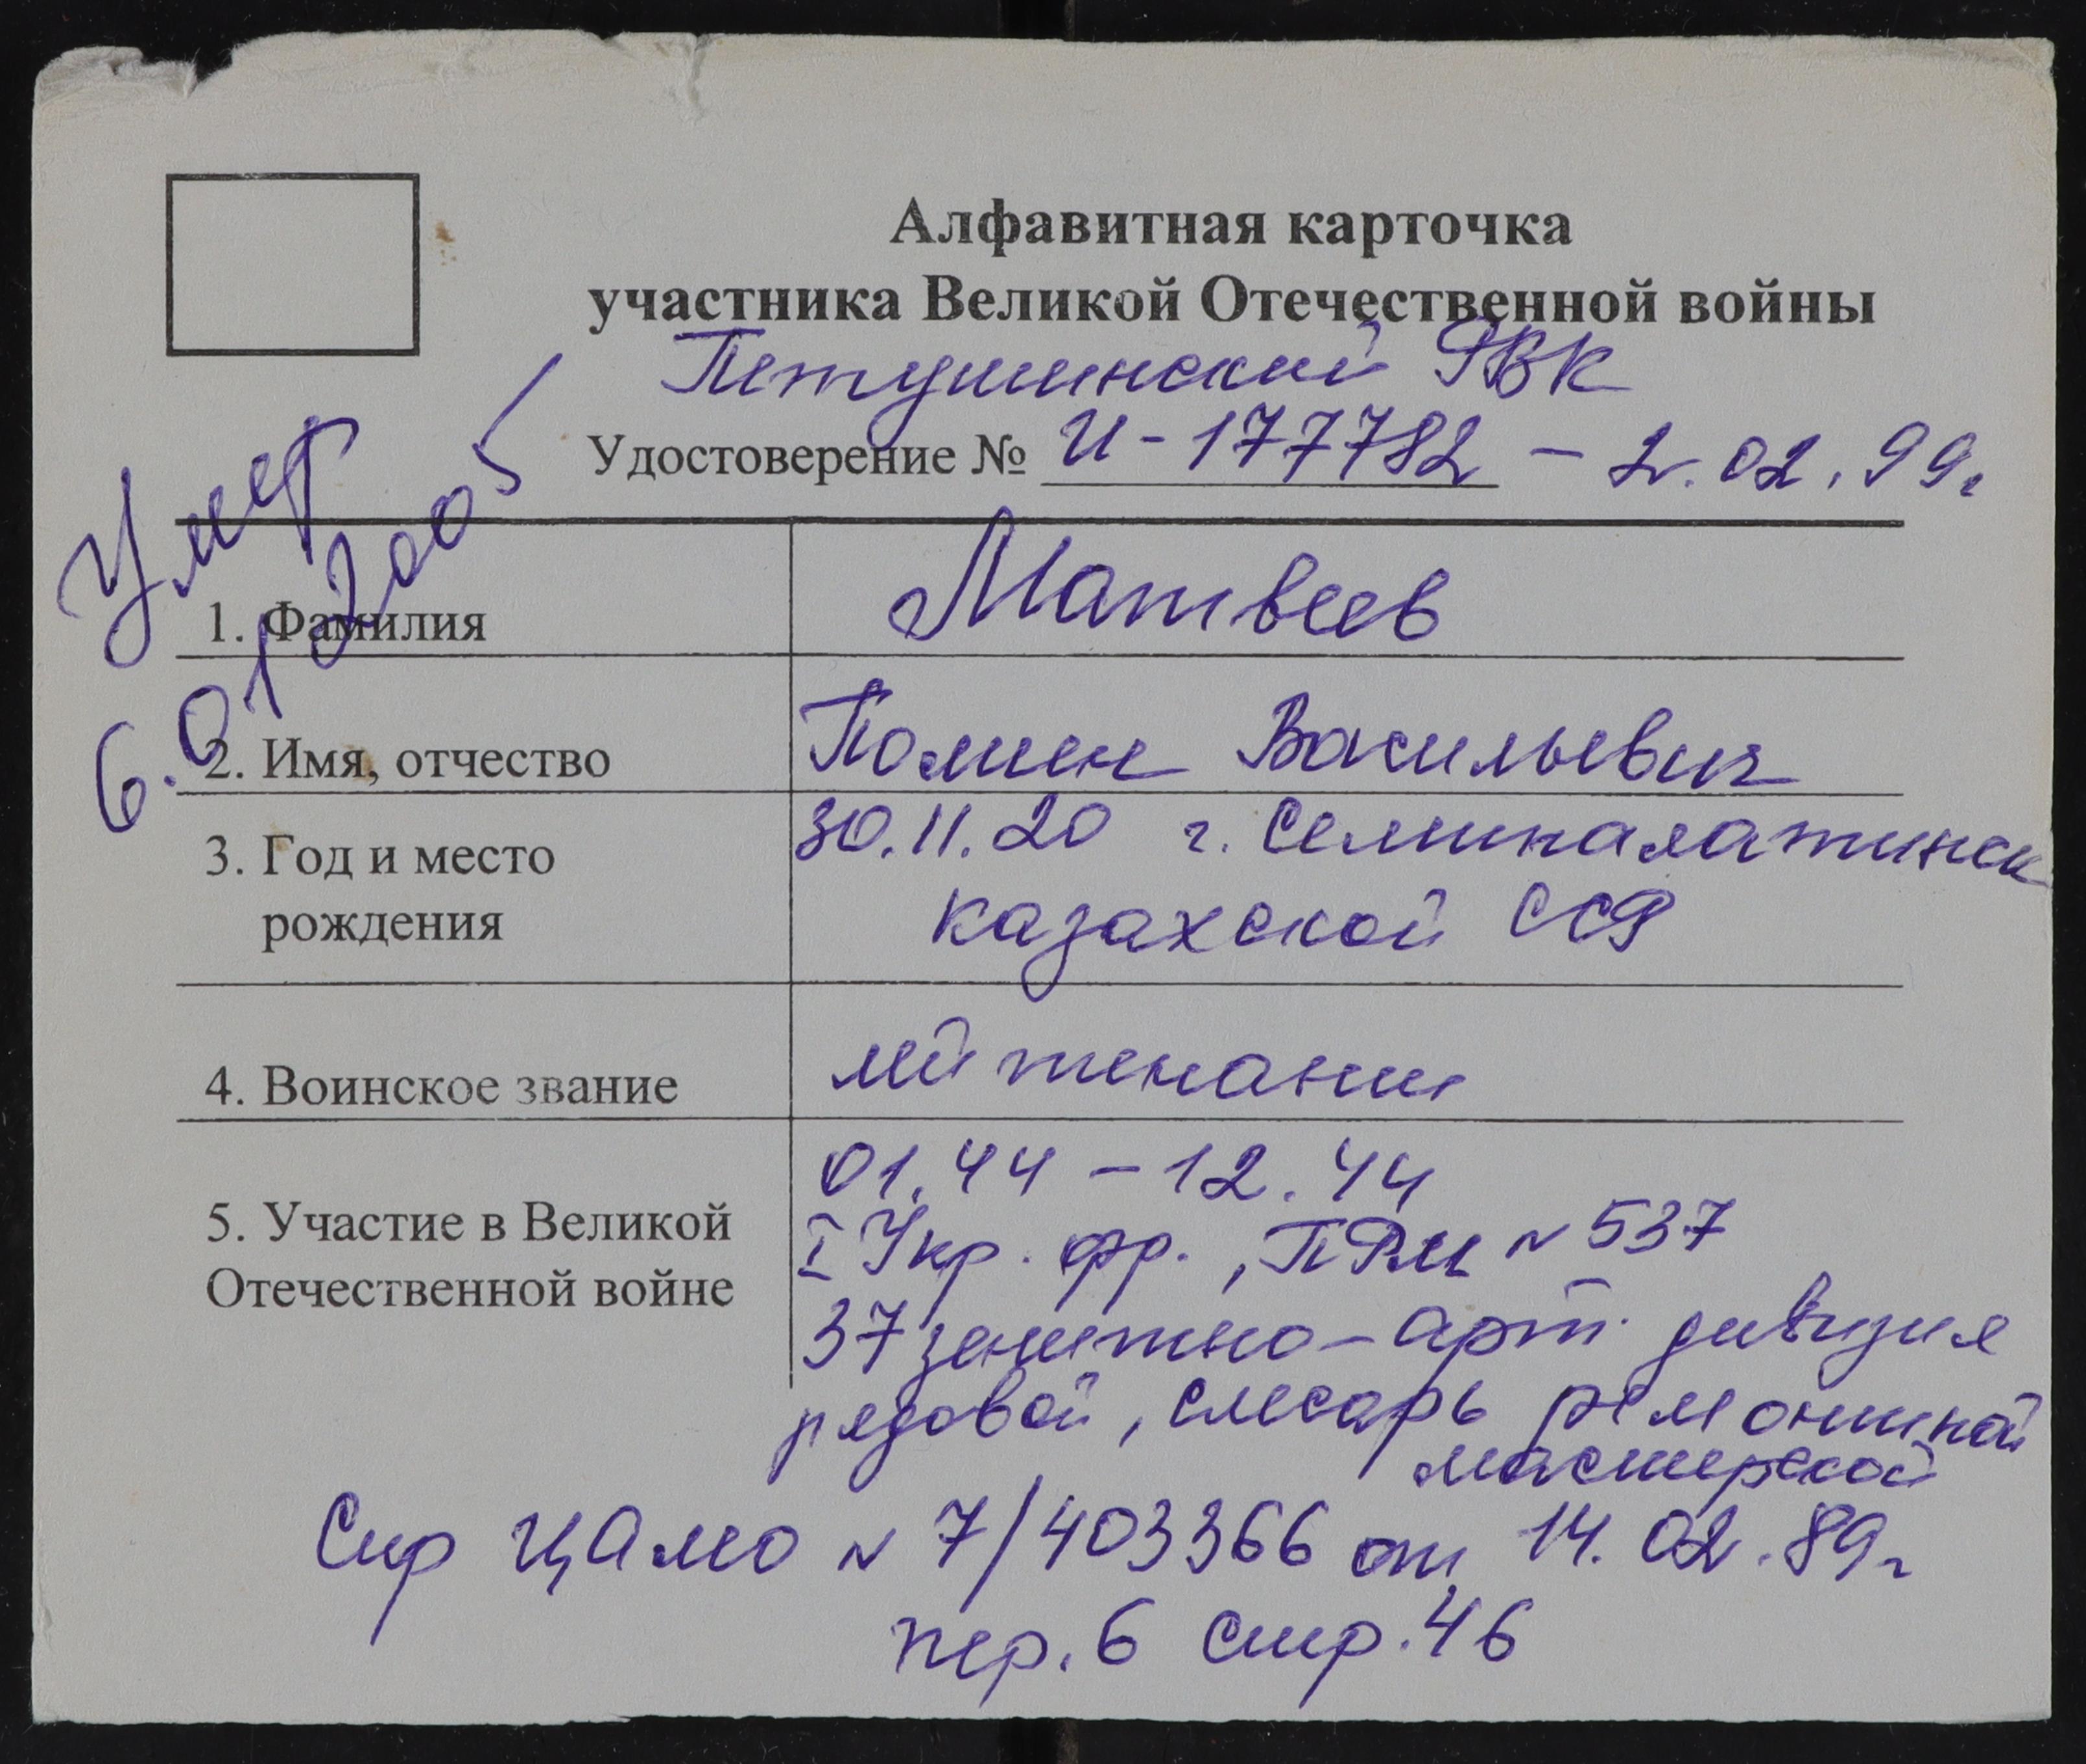 Алфавитная карточка
участника Великой Отечественной войны
Петушинский РВК
Удостоверение № И-177782 - 2.02.99г
Умер
6.01.2005
1. Фамилия Матвеев
2. Имя, отчество Помен Васильевич
3. Год и место 30.11.20 г. Семипалатинск
рождения казахской ССР
4. Воинское звание лейтенант
01.44 - 12.44
5. Участие в Великой I Укр. фр., ПРМ № 537
Отечественной войне 37 зенитно-арт. дивизия
рядовой, слесарь ремонтной
мастерской
Спр ЦАМО № 7/403366 от 14.02.89г
пер. 6 стр. 46